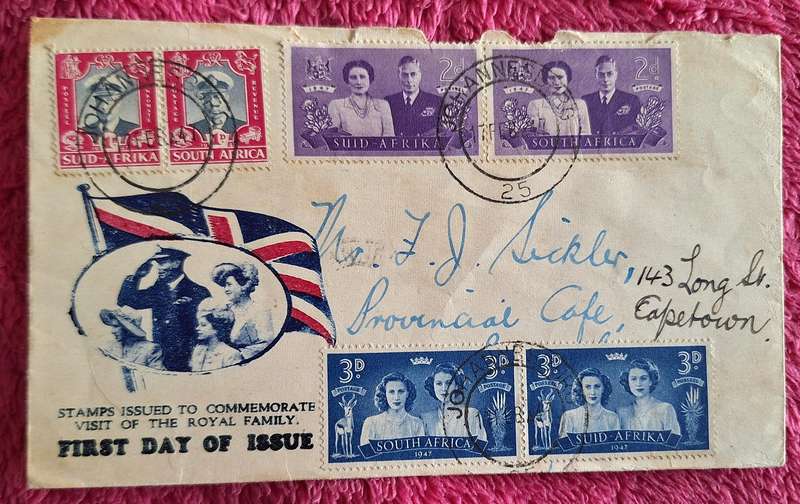 POSTAGE REVENUE
SUID-AFRIKA SOUTH AFRICA
JOHANNESBURG
2D. 2D.
POSTAGE
SUID-AFRIKA SOUTH AFRICA
JOHANNESBURG
17 FEB
25
Mr. F. J. Sickler,
Provincial Cafe,
143 Long St.
Capetown.
STAMPS ISSUED TO COMMEMORATE
VISIT OF THE ROYAL FAMILY.
FIRST DAY OF ISSUE
3D 3D 3D 3D
POSTAGE POSSEËL
SOUTH AFRICA SUID-AFRIKA
1947 1947
JOHANNESBURG